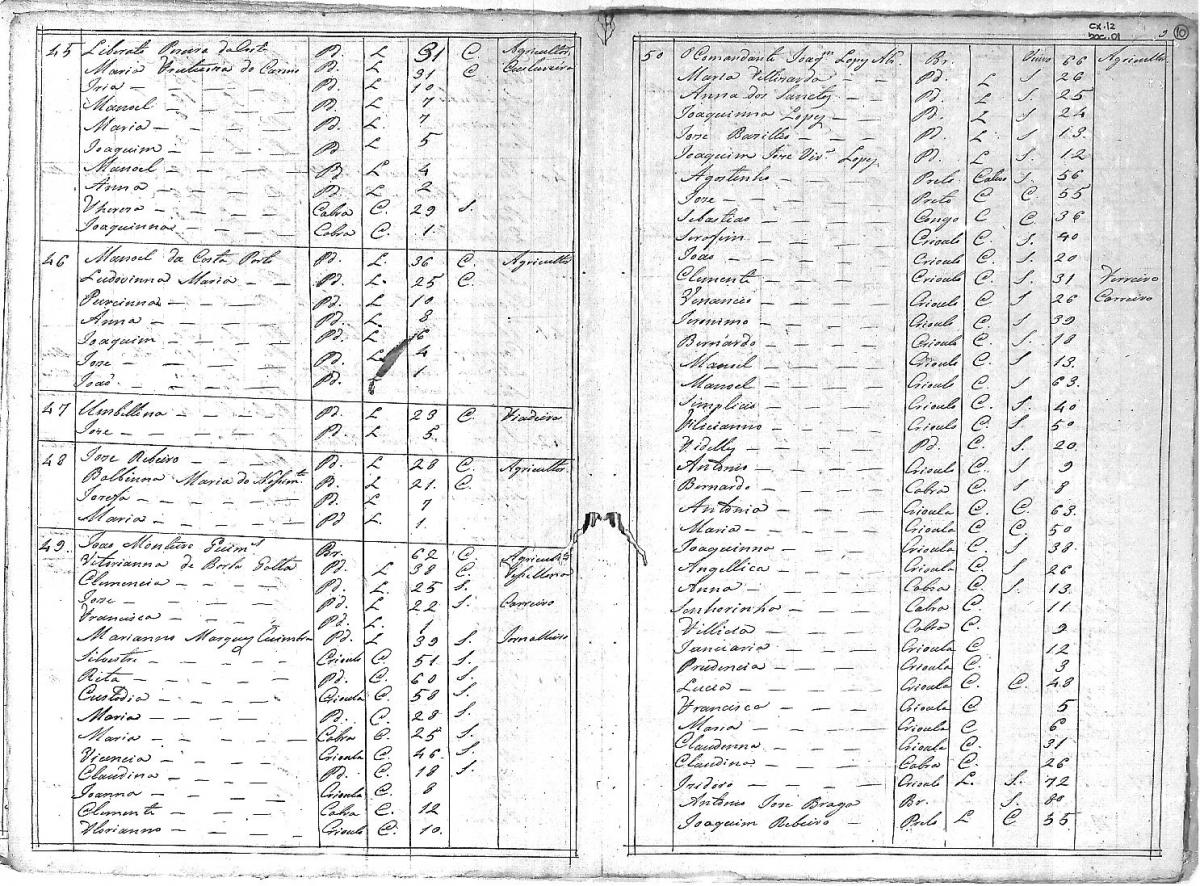 45 Liberato Pereira da Costa Pd. L 31 C. Agricultor
Maria do Carmo Pd. L 31 C
Iria Pd. L 10
Manoel Pd. L 7
Maria Pd. L 7
Joaquim Pd. L 5
Manoel Pd. L 4
Anna Pd. L 2
Thereza Cabra C. 29 S.
Joaquinna Cabra C. 1
46 Manoel da Costa Porto Pd. L 36 C. Agricultor
Ludovinna Maria Pd. L. 25 C.
Pd. L 10
Anna Pd. L. 8
Joaquim Pd. L 6
Jose Pd. L 4
Joaõ Pd. 1
47 Umbellina Pd. L 23 C. Fiadeira
Jose Pd. L 5.
48 Jose Ribeiro Pd. L 28 C. Agricultor
Balbinna Maria do Pd. L. 21. C.
Josefa Pd. L 7
Maria Pd L 1.
49. Joao Monteiro Guimes Br. 62 C. Agricult.
de Pd. L 38 C.
Clemencia Pd. L 25 S.
Jose Pd. L 22 S. Carreiro
Francisca Pd. L 1
Marques Pd. L 39 S. Jornalleiro
Silvestre Crioulo C. 51 S.
Rita Pd. C. 60 S.
Custodia Crioula C. 58 S.
Maria Pd. C. 28 S.
Maria Cabra C. 25 S.
Vicencia Crioula C. 46 S.
Claudina Pd. C. 18 S.
Joanna Crioula C. 8
Clemente Cabra C. 12
Florianno Crioulo C. 10
cx.12
doc.01
9 10
50 O Comandante Joaqm Lopes Br. Viuvo 66 Agricultor
Maria Pd. L S 26
Anna dos Sanctos Pd. L S. 25
Joaquinna Lopes Pd. L S. 24
Jose Basilio Pd. L S. 13
Joaquim Jose Lopes Pd. L S. 12
Agostinho Preto S. 56
Jose Preto C C. 55
Sebastiao Congo C C 36
Serafim Crioulo C. S. 40
Joao Crioulo C. S. 20
Clemente Crioulo C. S. 31 Ferreiro
Venancio Crioulo C S 26 Carreiro
Jeronimo Crioulo C. S 39
Bernardo Crioulo C. S. 18
Manoel Crioulo C. S 13.
Manoel Crioulo C. S 63.
Simplicio Crioulo C. S. 40
Crioulo C. S. 50
Pd. C. S. 20
Antonio Crioulo C. S 9
Bernardo Cabra C. S 8
Antonia Crioula C. C. 63.
Maria Crioula C. C. 50
Joaquinna Crioula C. S 38.
Angellica Crioula C. S 26
Anna Cabra C. S. 13
Senhorinha Cabra C. 11
Cabra C. 9
Januaria Crioula C. 12
Prudencia Crioula C. 3
Lucia Crioula C. C. 48
Francisca Crioula C 5
Maria Crioula C 6
Claudinna Crioula C. 31
Claudina Cabra C. 26
Isidoro Crioulo L. S. 72
Antonio Jose Braga Br. S. 80
Joaquim Ribeiro Preto L C. 55